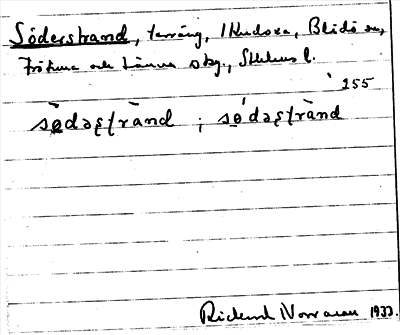 Söderstrand, terräng, 1 Kudoxa, Blidö sn,
Frötuna och Länna skg., Sthlms l.
255
sö̀dəʂtrànd ; sö́dəʂtrànd
Rickard Norrman 1933.